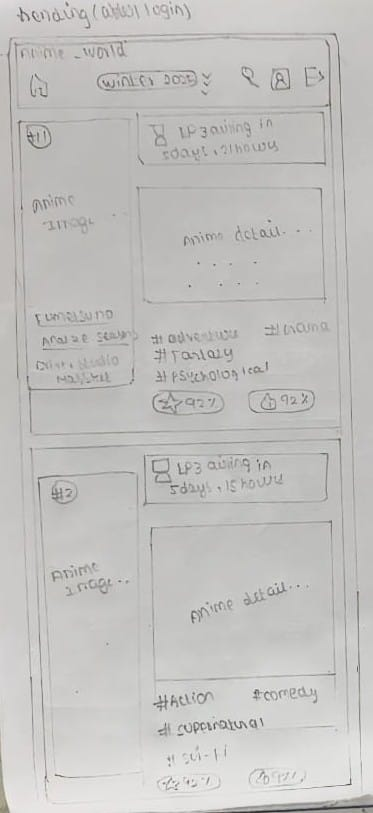 trending (after login)
Anime_world
Winter 2025
#1
EP3 airing in
5days, 21hours
Anime
Image...
Anime detail...
#adventure #Drama
#Fantasy
#Psychological
92% 92%
#2
EP3 airing in
5days, 15hours
Anime
Image...
Anime detail...
#Action #comedy
#supernatural
# sci-fi
92%